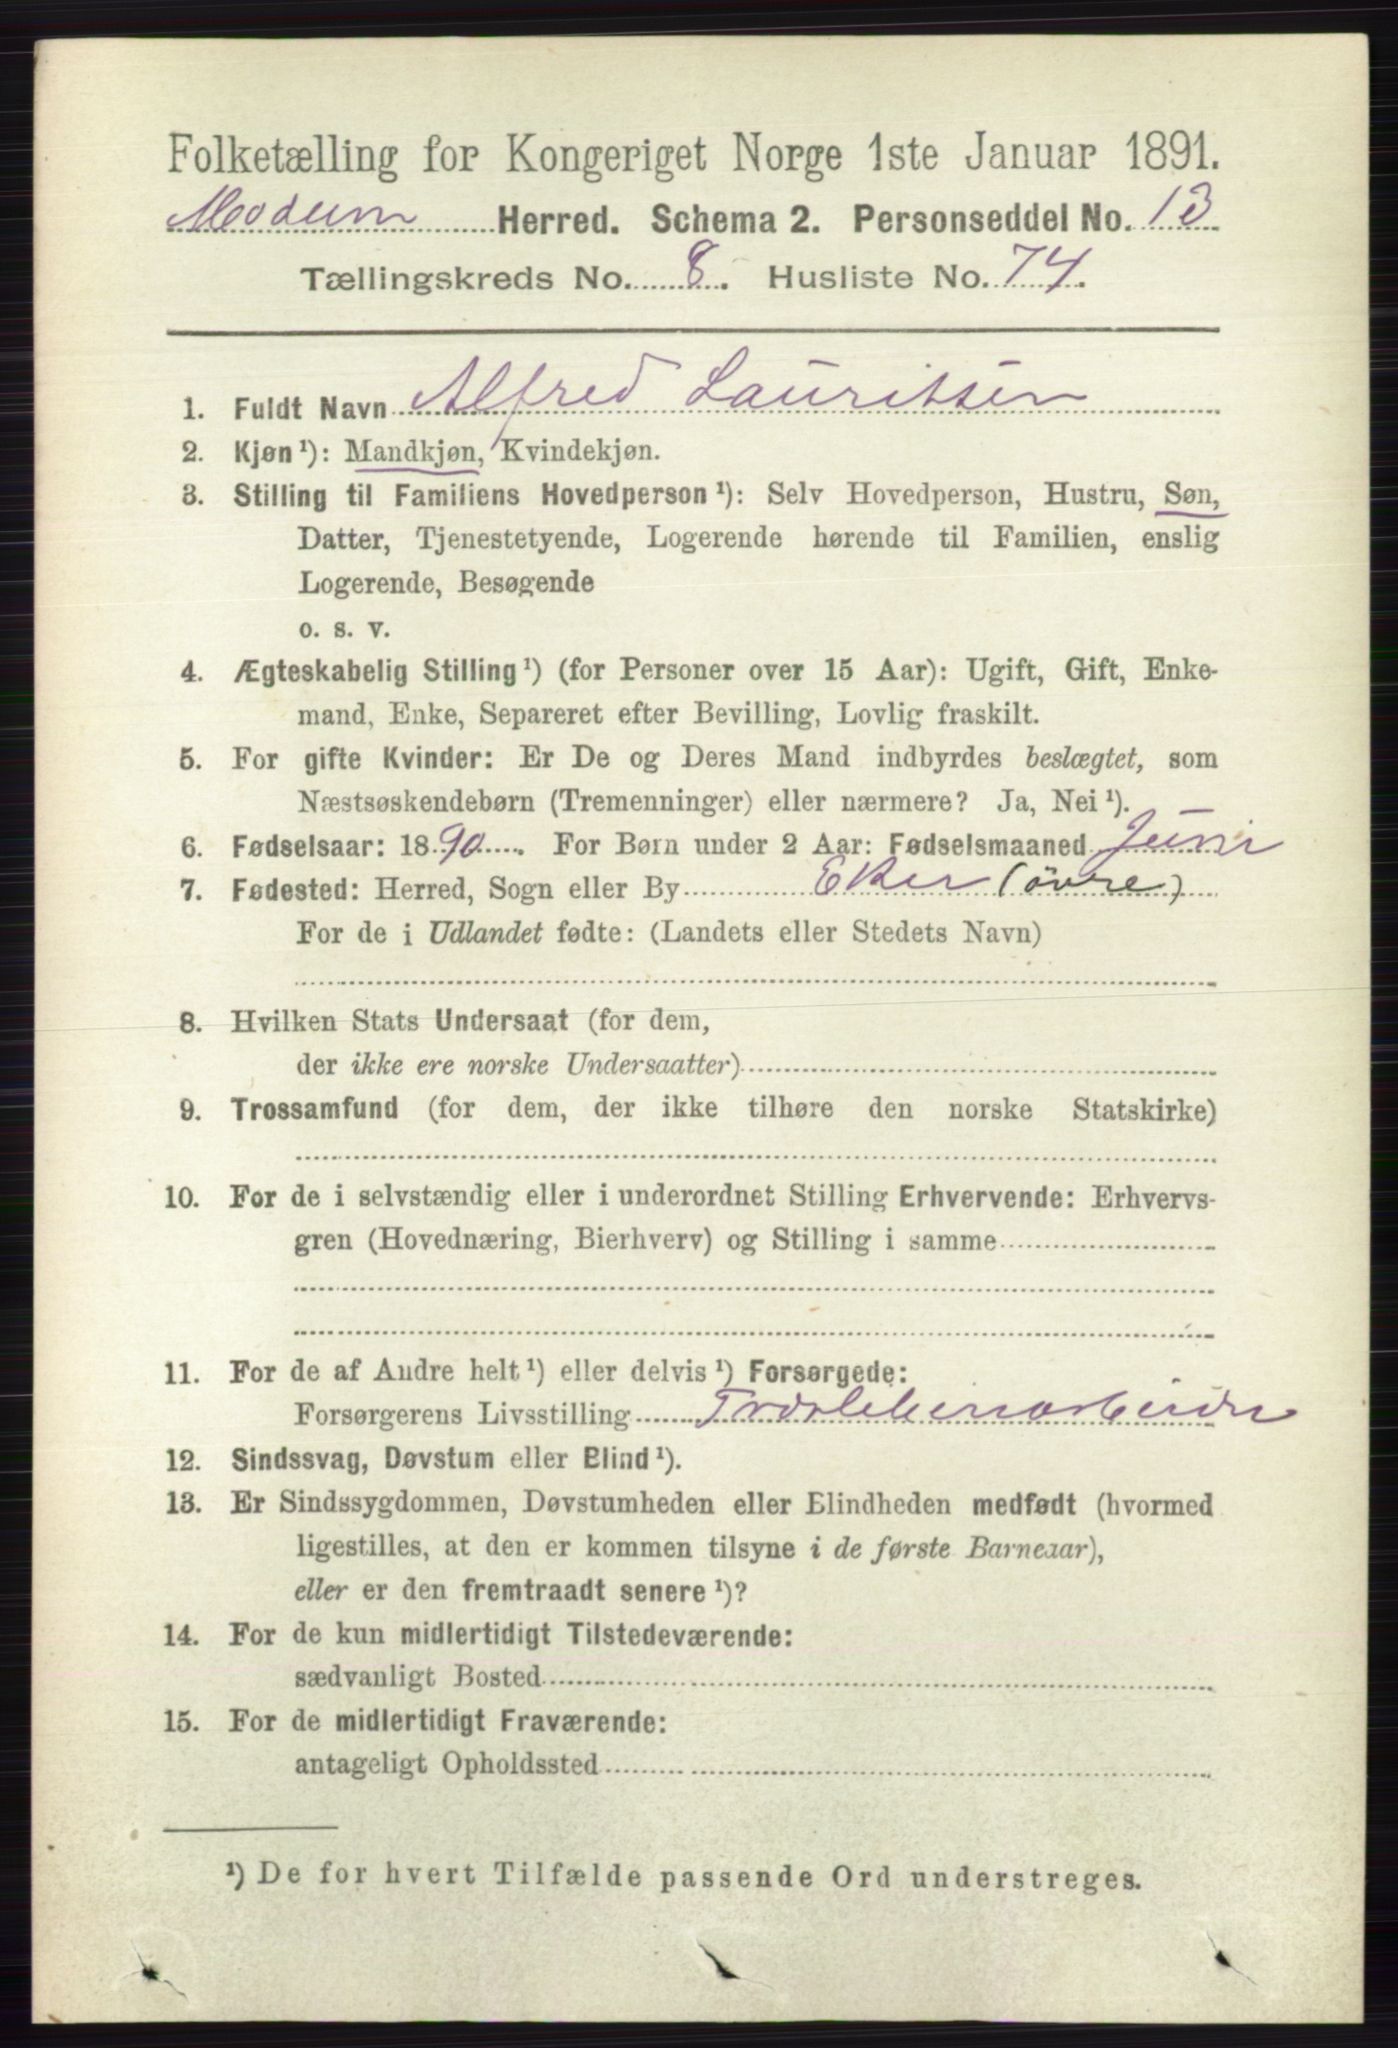 Folketælling for Kongeriget Norge 1ste Januar 1891.
Modum Herred. Schema 2. Personseddel No. 13
Tællingskreds No. 8. Husliste No. 74.
1. Fuldt Navn Alfred Lauritsen
2. Kjøn¹): Mandkjøn, Kvindekjøn.
3. Stilling til Familiens Hovedperson¹): Selv Hovedperson, Hustru, Søn,
Datter, Tjenestetyende, Logerende hørende til Familien, enslig
Logerende, Besøgende
o. s. v.
4. Ægteskabelig Stilling¹) (for Personer over 15 Aar): Ugift, Gift, Enke-
mand, Enke, Separeret efter Bevilling, Lovlig fraskilt.
5. For gifte Kvinder: Er De og Deres Mand indbyrdes beslægtet, som
Næstsøskendebørn (Tremenninger) eller nærmere? Ja, Nei¹).
6. Fødselsaar: 1890. For Børn under 2 Aar: Fødselsmaaned Juni
7. Fødested: Herred, Sogn eller By Eker (övre)
For de i Udlandet fødte: (Landets eller Stedets Navn)
8. Hvilken Stats Undersaat (for dem,
der ikke ere norske Undersaatter)
9. Trossamfund (for dem, der ikke tilhøre den norske Statskirke)
10. For de i selvstændig eller i underordnet Stilling Erhvervende: Erhvervs-
gren (Hovednæring, Bierhverv) og Stilling i samme
11. For de af Andre helt¹) eller delvis¹) Forsørgede:
Forsørgerens Livsstilling
12. Sindssvag, Døvstum eller Blind¹).
13. Er Sindssygdommen, Døvstumheden eller Blindheden medfødt (hvormed
ligestilles, at den er kommen tilsyne i de første Barneaar),
eller er den fremtraadt senere¹)?
14. For de kun midlertidigt Tilstedeværende:
sædvanligt Bosted
15. For de midlertidigt Fraværende:
antageligt Opholdssted
¹) De for hvert Tilfælde passende Ord understreges.